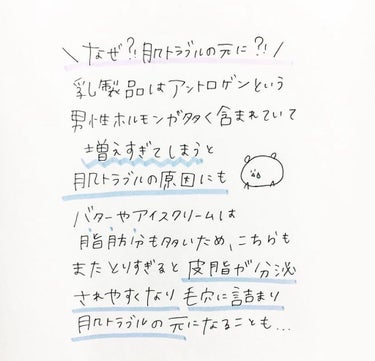 ＼なぜ?!肌トラブルの元に?!／
乳製品はアントロゲンという
男性ホルモンが多く含まれていて
増えすぎてしまうと
肌トラブルの原因にも
バターやアイスクリームは
脂肪分も多いため、こちらも
またとりすぎると皮脂が分泌
されやすくなり毛穴に詰まり
肌トラブルの元になることも…